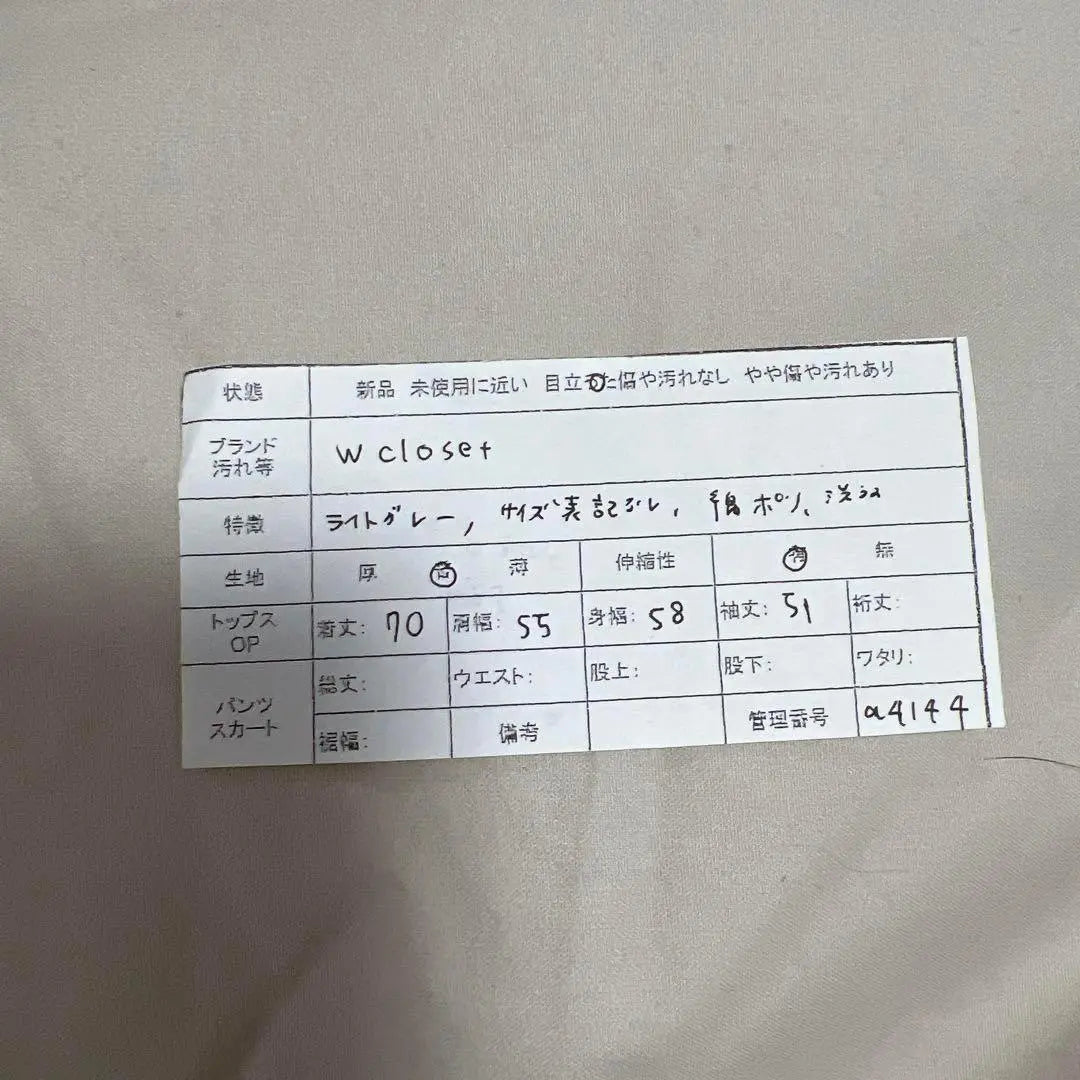 状態 新品 未使用に近い 目立った傷や汚れなし やや傷や汚れあり
ブランド 汚れ等 w closet
特徴 ライトグレー, サイズ表記なし, 綿ポリ、洗える
生地 厚 薄 伸縮性 有 無
トップス OP 着丈: 70 肩幅: 55 身幅: 58 袖丈: 51 裄丈:
パンツ スカート 総丈: ウエスト: 股上: 股下: ワタリ:
裾幅: 備考 管理番号 a4144